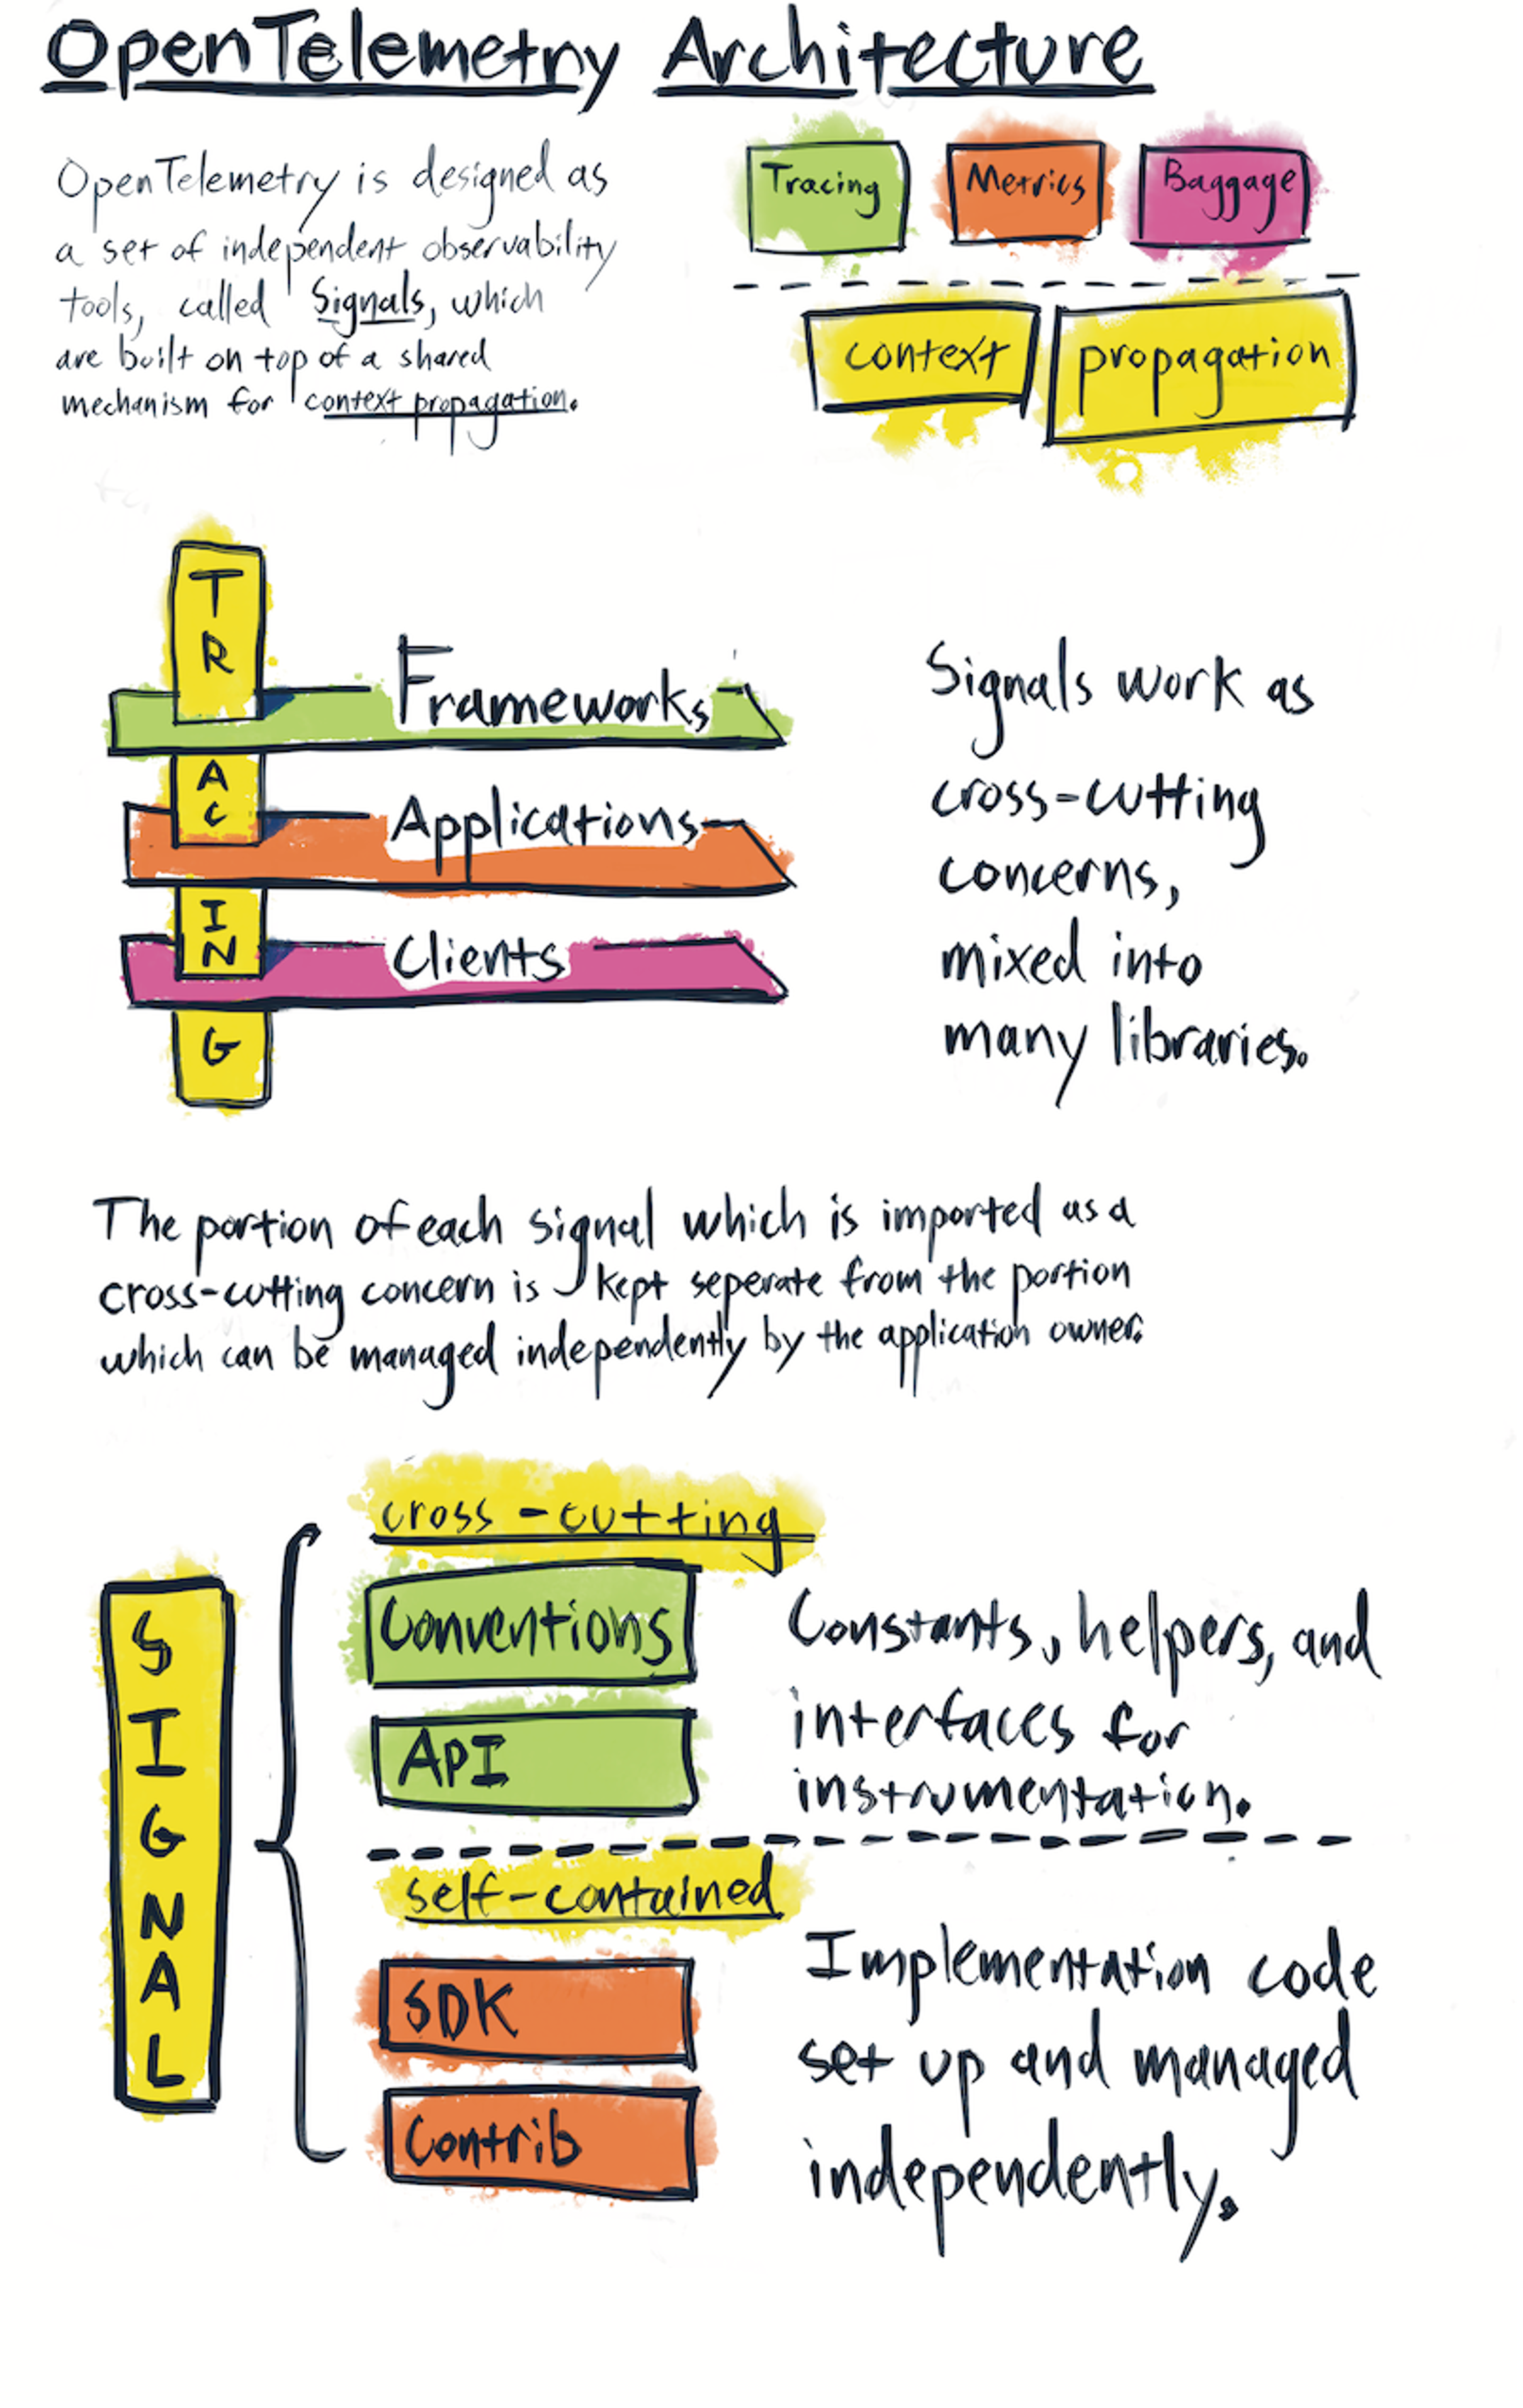 OpenTelemetry Architecture
OpenTelemetry is designed as
a set of independent observability
tools, called Signals, which
are built on top of a shared
mechanism for context propagation.
Tracing
Metrics
Baggage
context
propagation
TRACING
Frameworks
Applications
Clients
Signals work as
cross-cutting
concerns,
mixed into
many libraries.
The portion of each signal which is imported as a
cross-cutting concern is kept seperate from the portion
which can be managed independently by the application owner.
SIGNAL
cross-cutting
Conventions
API
Constants, helpers, and
interfaces for
instrumentation.
self-contained
SDK
Contrib
Implementation code
set up and managed
independently.